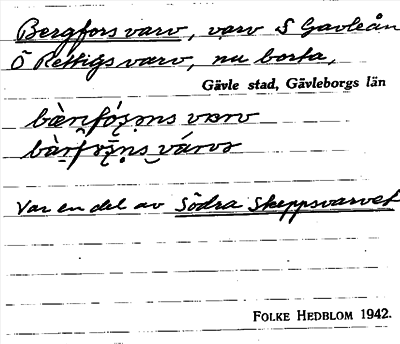 Bergfors varv, varv S Gavleån
Ö Rettigs varv, nu borta,
Gävle stad, Gävleborgs län
Var en del av Södra Skeppsvarvet
FOLKE HEDBLOM 1942.